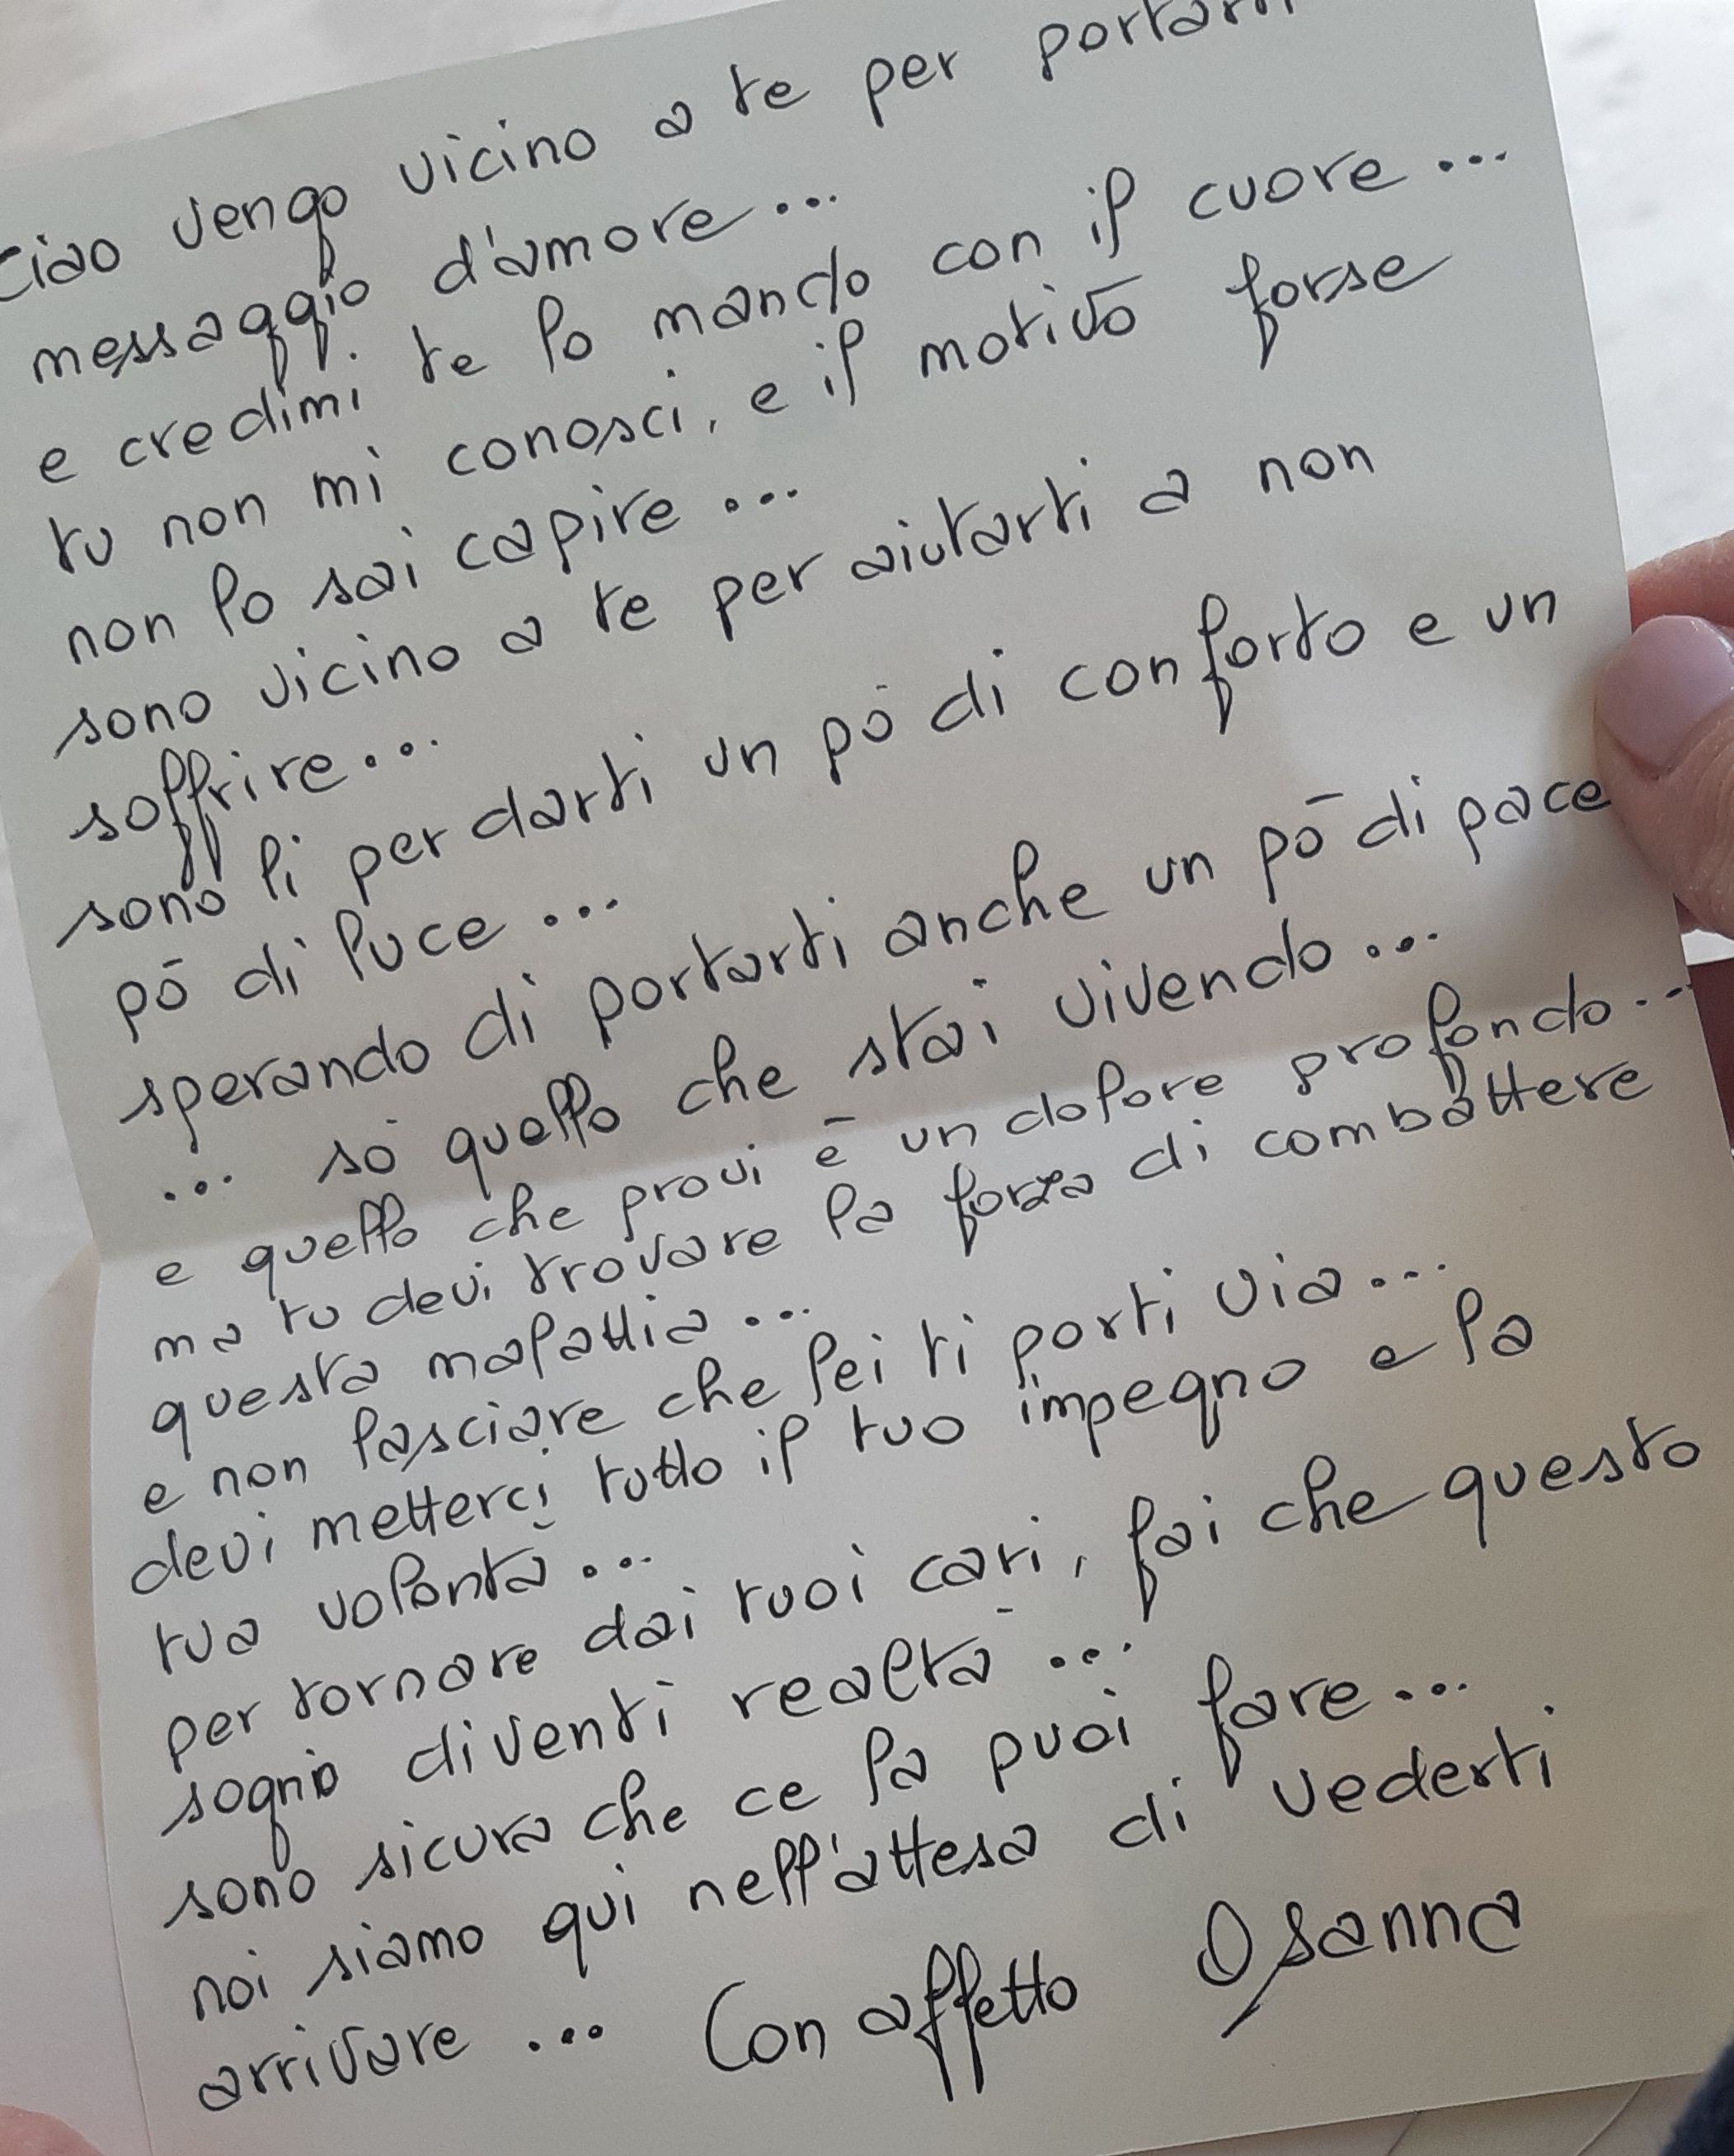 ciao vengo vicino a te per
messaggio d'amore...
e credimi te lo mando con il cuore...
tu non mi conosci, e il motivo forse
non lo sai capire...
sono vicino a te per aiutarti a non
soffrire...
sono li per darti un pò di conforto e un
pò di luce...
sperando di portarti anche un pò di pace
... sò quello che stai vivendo...
e quello che provi è un dolore profondo...
ma tu devi trovare la forza di combattere
questa malattia...
e non lasciare che lei ti porti via...
devi metterci tutto il tuo impegno e la
tua volontà...
per tornare dai tuoi cari, fai che questo
sogno diventi realtà...
sono sicura che ce la puoi fare...
noi siamo qui nell'attesa di vederti
arrivare... Con affetto Osanna